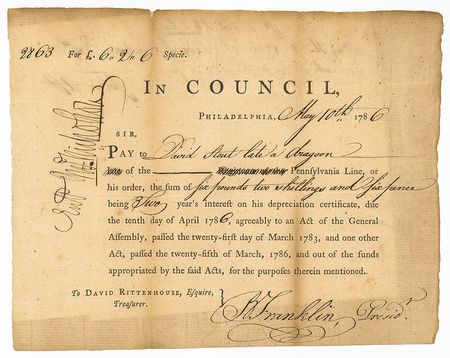 2863 For £. 6 " 2 " 6 Specie.
IN COUNCIL,
PHILADELPHIA, May 10th. 1786
SIR,
PAY to David Stout late a dragoon
of the Pennsylvania Line, or
his order, the sum of six pounds two shillings and six pence
being Two year's interest on his depreciation certificate, due
the tenth day of April 1786, agreeably to an Act of the General
Assembly, passed the twenty-first day of March 1783, and one other
Act, passed the twenty-fifth of March, 1786, and out of the funds
appropriated by the said Acts, for the purposes therein mentioned.
To DAVID RITTENHOUSE, Esquire,
Treasurer.
B Franklin, Presidt.